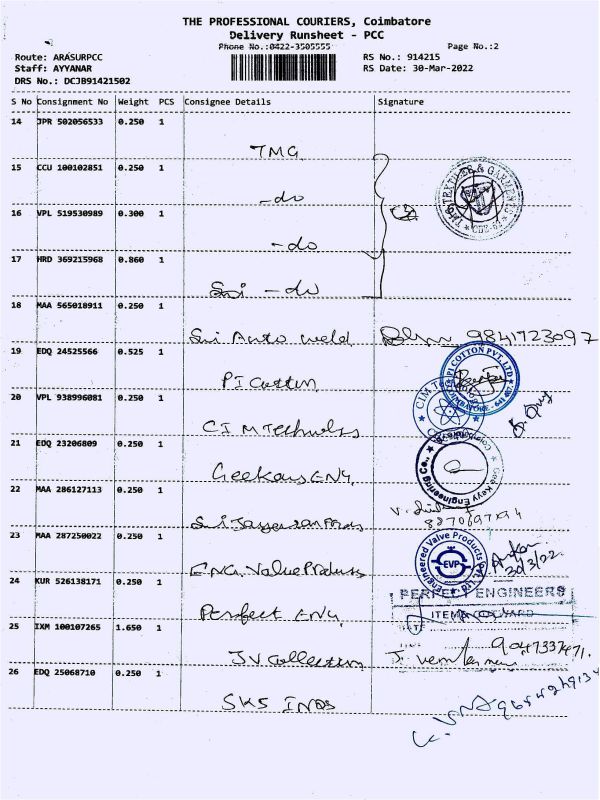 THE PROFESSIONAL COURIERS, Coimbatore
Delivery Runsheet - PCC
Phone No.:0422-3505555
Page No.:2
Route: ARASURPCC
RS No.: 914215
Staff: AYYANAR
RS Date: 30-Mar-2022
DRS No.: DCJB91421502
S No Consignment No Weight PCS Consignee Details Signature
14 JPR 502056533 0.250 1
TMG
15 CCU 100102851 0.250 1
-do
TMG TEXTILES & GARMENTS
CBE-62
16 VPL 519530989 0.300 1
-do
17 HRD 369215968 0.860 1
-do
18 MAA 565018911 0.250 1
Sri Auto weld 9841723097
19 EDQ 24525566 0.525 1
PI Cotton
PI COTTON PVT. LTD
COIMBATORE - 641 407
20 VPL 938996081 0.250 1
CIM
21 EDQ 23206809 0.250 1
Geekays ENG.
Gee Keyy Engineering Co.,
Coimbatore
22 MAA 286127113 0.250 1
23 MAA 287250022 0.250 1
ENG. Value Products
Engineered Valve Products Pvt. Ltd
EVP
30/3/22.
24 KUR 526138171 0.250 1
Perfect ENG.
PERFECT ENGINEERS
25 IXM 100107265 1.650 1
JV Collection
9047337471.
26 EDQ 25068710 0.250 1
SKS INDS